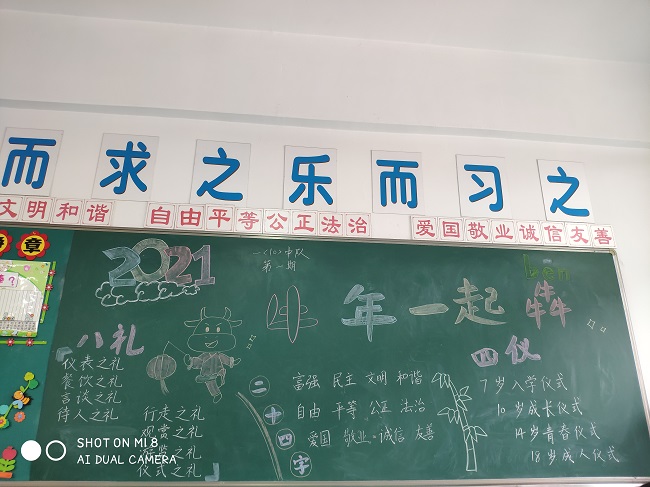 而求之乐而习之
文明和谐 自由平等公正法治 爱国敬业诚信友善
章
2021
一(10)中队
第一期
牛年一起犇
八礼
仪表之礼
餐饮之礼
言谈之礼
待人之礼
行走之礼
观赏之礼
游览之礼
仪式之礼
二十四字
富强 民主 文明 和谐
自由 平等 公正 法治
爱国 敬业 诚信 友善
四仪
7岁入学仪式
10岁成长仪式
14岁青春仪式
18岁成人仪式
SHOT ON MI 8
AI DUAL CAMERA